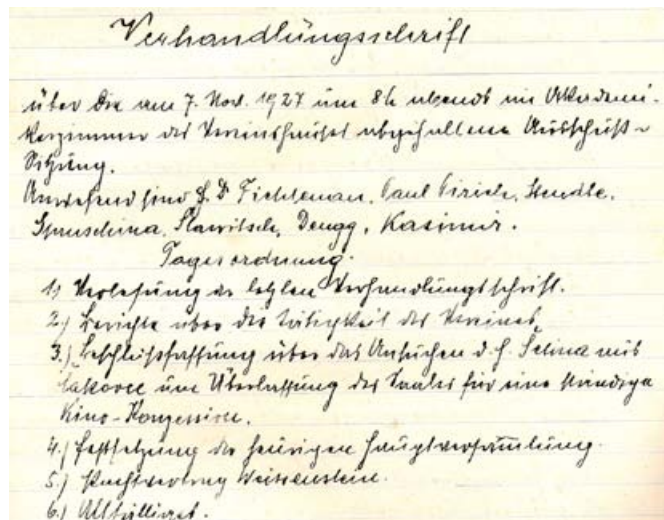 Verhandlungsschrift
über die am 7. Nov. 1927 um 8h abends im Akademi-
kerzimmer des Vereinshauses abgehaltene Ausschuß-
Sitzung.
Anwesend sind H. D. Fichteman, Paul Pirich, Hendle,
Slawitsch, Dengg, Kasimir.
Tagesordnung.
1.) Verlesung der letzten Verhandlungsschrift.
2.) Berichte über die Tätigkeit des Vereines.
3.) Beschlußfassung über das Ansuchen d. H. Selina aus
Čakovec um Überlassung des Saales für eine ständige
Kino-Konzession.
4.) Festsetzung der heurigen Hauptversammlung.
5.) Pachtvertrag Weissenstein.
6.) Allfälliges.